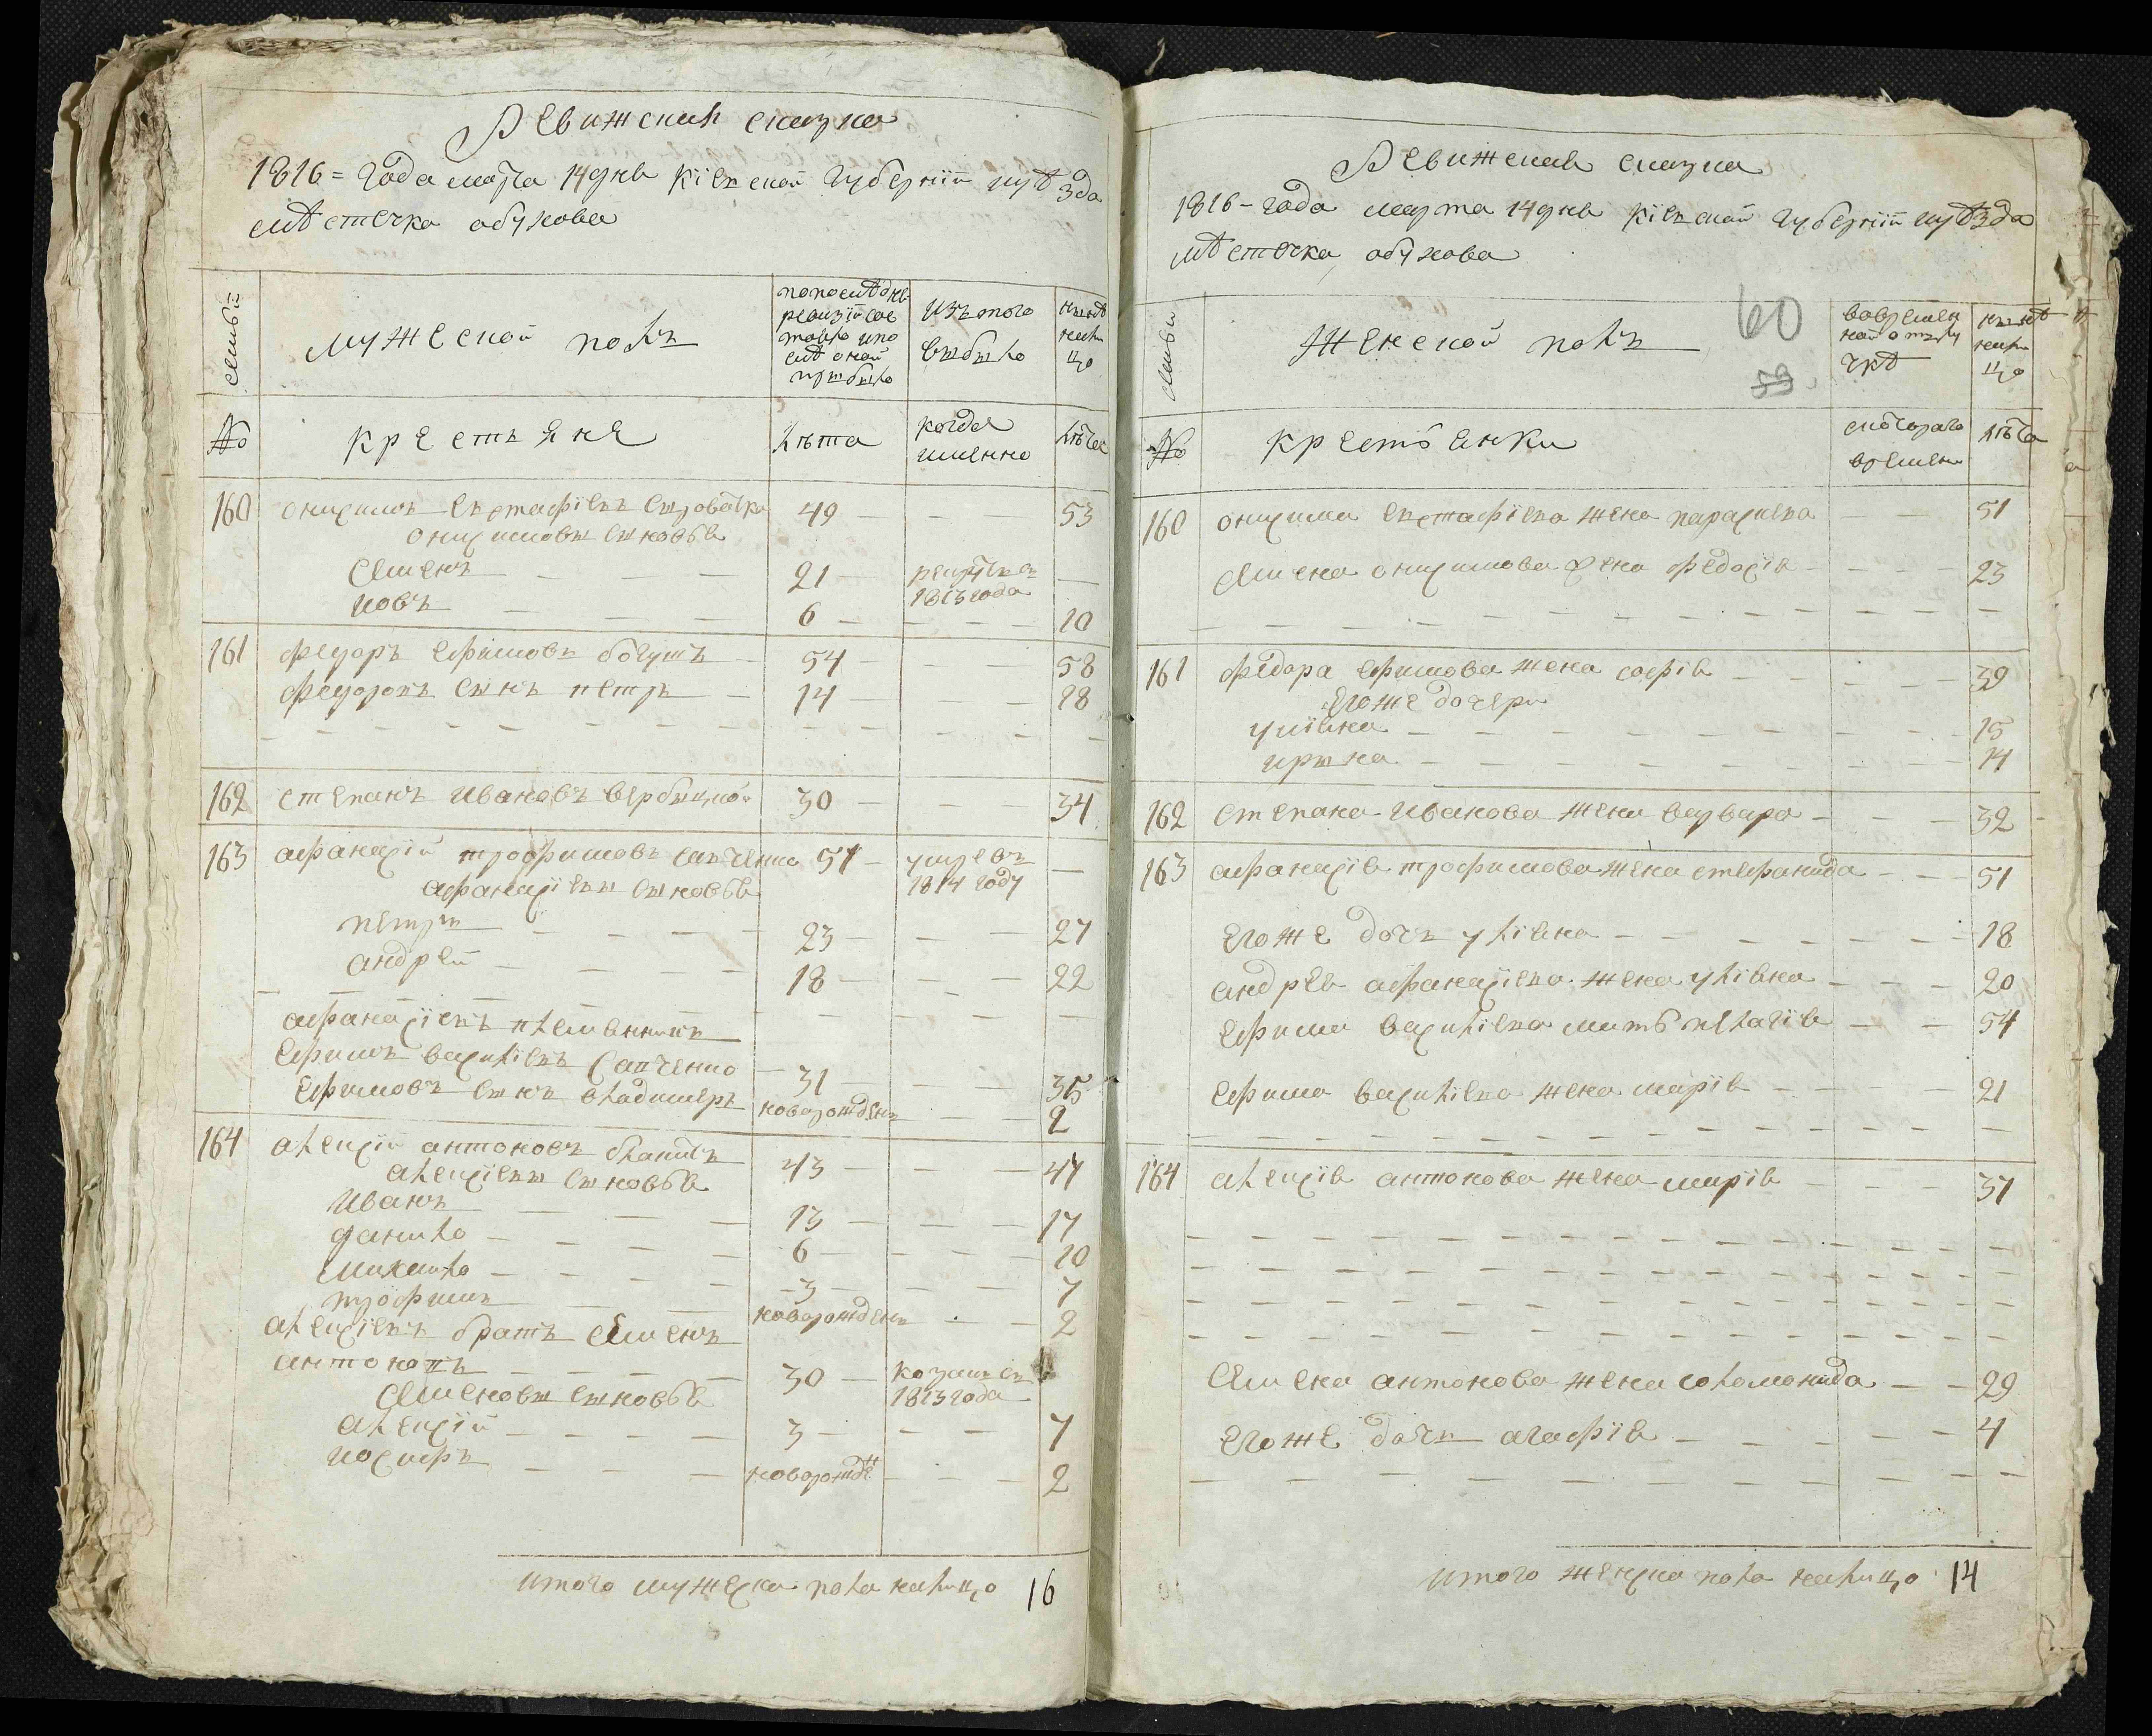 Ревижская сказка
1816 = года марта 14 дня Кіевской Губерніи и уѣзда
мѣстечка обухова
Семьи
мужеской полъ
попоследней
ревизіи сос
тояло и по
слѣ оной
прибыло
Изъ того
выбыло
Нынѣ
нали
цо
№
крестьяне
Лѣта
когда
именно
Лѣта
160 онисимъ евстафіевъ 49 — — 53
онисимовы сыновья
Семенъ — — — 21 — рекрутъ 1813 года —
иовъ — — — 6 — — — — 10
161 федоръ ефимовъ богушъ — 54 — — — 58
федоровъ сынъ петръ — 14 — — — 18
162 степанъ Ивановъ вербицкой 30 — — — 34
163 афанасій трофимовъ сапченко 51 — умре въ 1814 году —
афанасіевы сыновья
петръ — — — — 23 — — — 27
андрей — — — — 18 — — — 22
афанасіевъ племянникъ
ефимъ василіевъ сапченко — 31 — — 35
ефимовъ сынъ владимеръ новорожденъ — — 2
164 алексій антоновъ 43 — — — 47
алексіевы сыновья
Иванъ — — — 13 — — — 17
данило — — — — 6 — — — — 10
михайло — — — — 3 — — — 7
трофимъ — — новорожденъ — — 2
алексіевъ братъ семенъ
антоновъ — — — — 30 — 1813 года
Семеновы сыновья
алексій — — — — 3 — — — 7
иосифъ — — — новорожден — — — 2
итого мужеска пола налицо 16
Ревижская сказка
1816 — года марта 14 дня Кіевской Губерніи и уѣзда
мѣстечка обухова
60
59
Семьи
Женской полъ
вовремен
ной отлу
чкѣ
нынѣ
нали
цо
№
крестьянки
съ котораго
времени
лѣта
160 онисима евстафіева жена параскева — — 51
Семена онисимова жена федосія — — — — 23
161 федора ефимова жена софія — — — — — 39
егоже дочери
уліяна — — — — — — — — — 15
ирына — — — — — — — — — 14
162 степана Иванова жена варвара — — — 32
163 афанасія трофимова жена стефанида — — 51
егоже дочъ уліяна — — — — — — — 18
андрея афанасіева жена уліяна — — — 20
ефима василіева мать пелагія — — 54
ефима василіева жена марія — — — — 21
164 алексія антонова жена марія — — — 37
Семена антонова жена соломонида — — 29
егоже дочъ агафія — — — — — 4
итого женска пола налицо 14